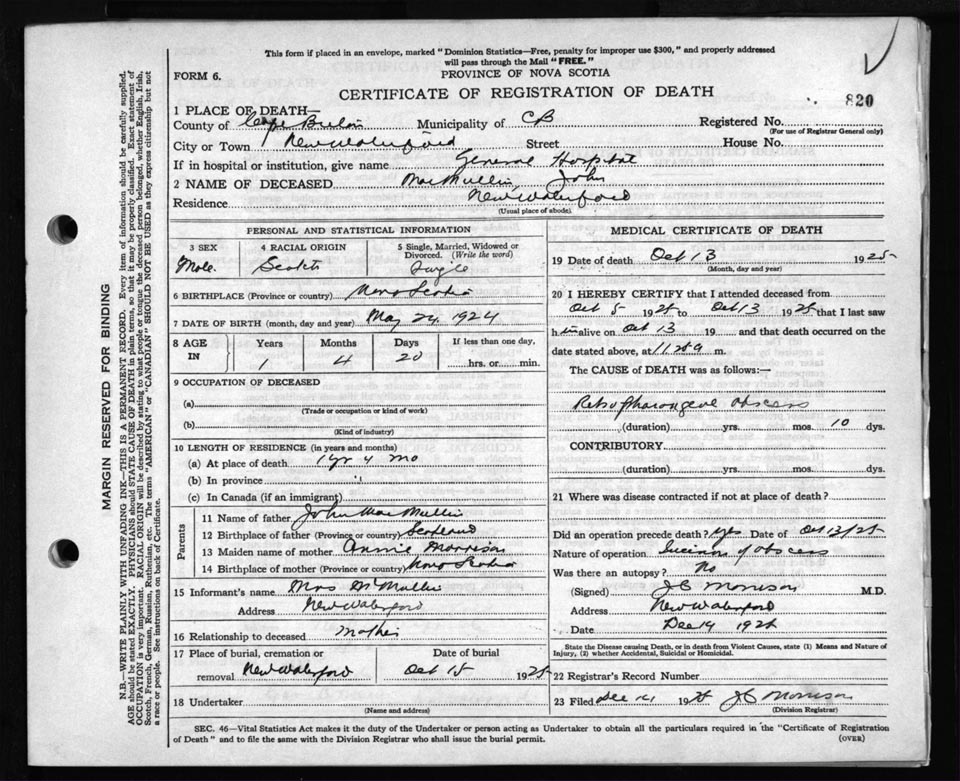 This form if placed in an envelope, marked "Dominion Statistics—Free, penalty for improper use $300," and properly addressed
will pass through the Mail "FREE."
FORM 6.
PROVINCE OF NOVA SCOTIA
CERTIFICATE OF REGISTRATION OF DEATH
820
1 PLACE OF DEATH—
County of Cape Breton Municipality of CB Registered No.
(For use of Registrar General only)
City or Town New Waterford Street House No.
If in hospital or institution, give name General Hospital
2 NAME OF DECEASED MacMullin, John
Residence New Waterford
(Usual place of abode)
PERSONAL AND STATISTICAL INFORMATION
3 SEX 4 RACIAL ORIGIN 5 Single, Married, Widowed or Divorced. (Write the word)
Male Scotch Single
6 BIRTHPLACE (Province or country) Nova Scotia
7 DATE OF BIRTH (month, day and year) May 24, 1924
8 AGE IN Years Months Days If less than one day,
1 4 20 hrs. or min.
9 OCCUPATION OF DECEASED
(a)
(Trade or occupation or kind of work)
(b)
(Kind of industry)
10 LENGTH OF RESIDENCE (in years and months)
(a) At place of death 1 yr 4 mo
(b) In province "
(c) In Canada (if an immigrant)
Parents
11 Name of father John MacMullin
12 Birthplace of father (Province or country) Scotland
13 Maiden name of mother Annie Morrison
14 Birthplace of mother (Province or country) Nova Scotia
15 Informant's name Mrs McMullin
Address New Waterford
16 Relationship to deceased Mother
17 Place of burial, cremation or removal Date of burial
New Waterford Oct 15 1925
18 Undertaker
(Name and address)
MEDICAL CERTIFICATE OF DEATH
19 Date of death Oct 13 1925
(Month, day and year)
20 I HEREBY CERTIFY that I attended deceased from
Oct 5 1925 to Oct 13 1925 that I last saw
h im alive on Oct 13 19 and that death occurred on the
date stated above, at m.
The CAUSE of DEATH was as follows:—
Retropharongeal abscess
(duration) yrs. mos. 10 dys.
CONTRIBUTORY
(duration) yrs. mos. dys.
21 Where was disease contracted if not at place of death?
Did an operation precede death? yes Date of Oct 12/25
Nature of operation Incision of abscess
Was there an autopsy? No
(Signed) J C Morrison M.D.
Address New Waterford
Date Dec 14 192
State the Disease causing Death, or in death from Violent Causes, state (1) Means and Nature of
Injury, (2) whether Accidental, Suicidal or Homicidal.
22 Registrar's Record Number
23 Filed Dec 14 19 J C Morrison
(Division Registrar)
SEC. 46—Vital Statistics Act makes it the duty of the Undertaker or person acting as Undertaker to obtain all the particulars required in the "Certificate of Registration
of Death" and to file the same with the Division Registrar who shall issue the burial permit.
(OVER)
MARGIN RESERVED FOR BINDING
N.B.—WRITE PLAINLY WITH UNFADING INK—THIS IS A PERMANENT RECORD. Every item of information should be carefully supplied.
AGE should be stated EXACTLY. PHYSICIANS should STATE CAUSE OF DEATH in plain terms, so that it may be properly classified. Exact statement of
OCCUPATION is very important. RACIAL ORIGIN will be described by stating to what people or tongue the deceased person belonged, whether English, Irish,
Scotch, French, German, Russian, Ruthenian, etc. The terms "AMERICAN" or "CANADIAN" SHOULD NOT BE USED as they express citizenship but not
a race or people. See instructions on back of Certificate.